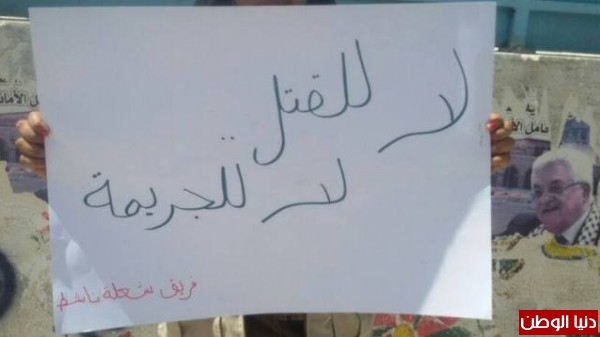 لا للقتل ..
لا للجريمة
فريق شعلة ناشط
ل الأمان
حامل الأ
دنيا الوطن